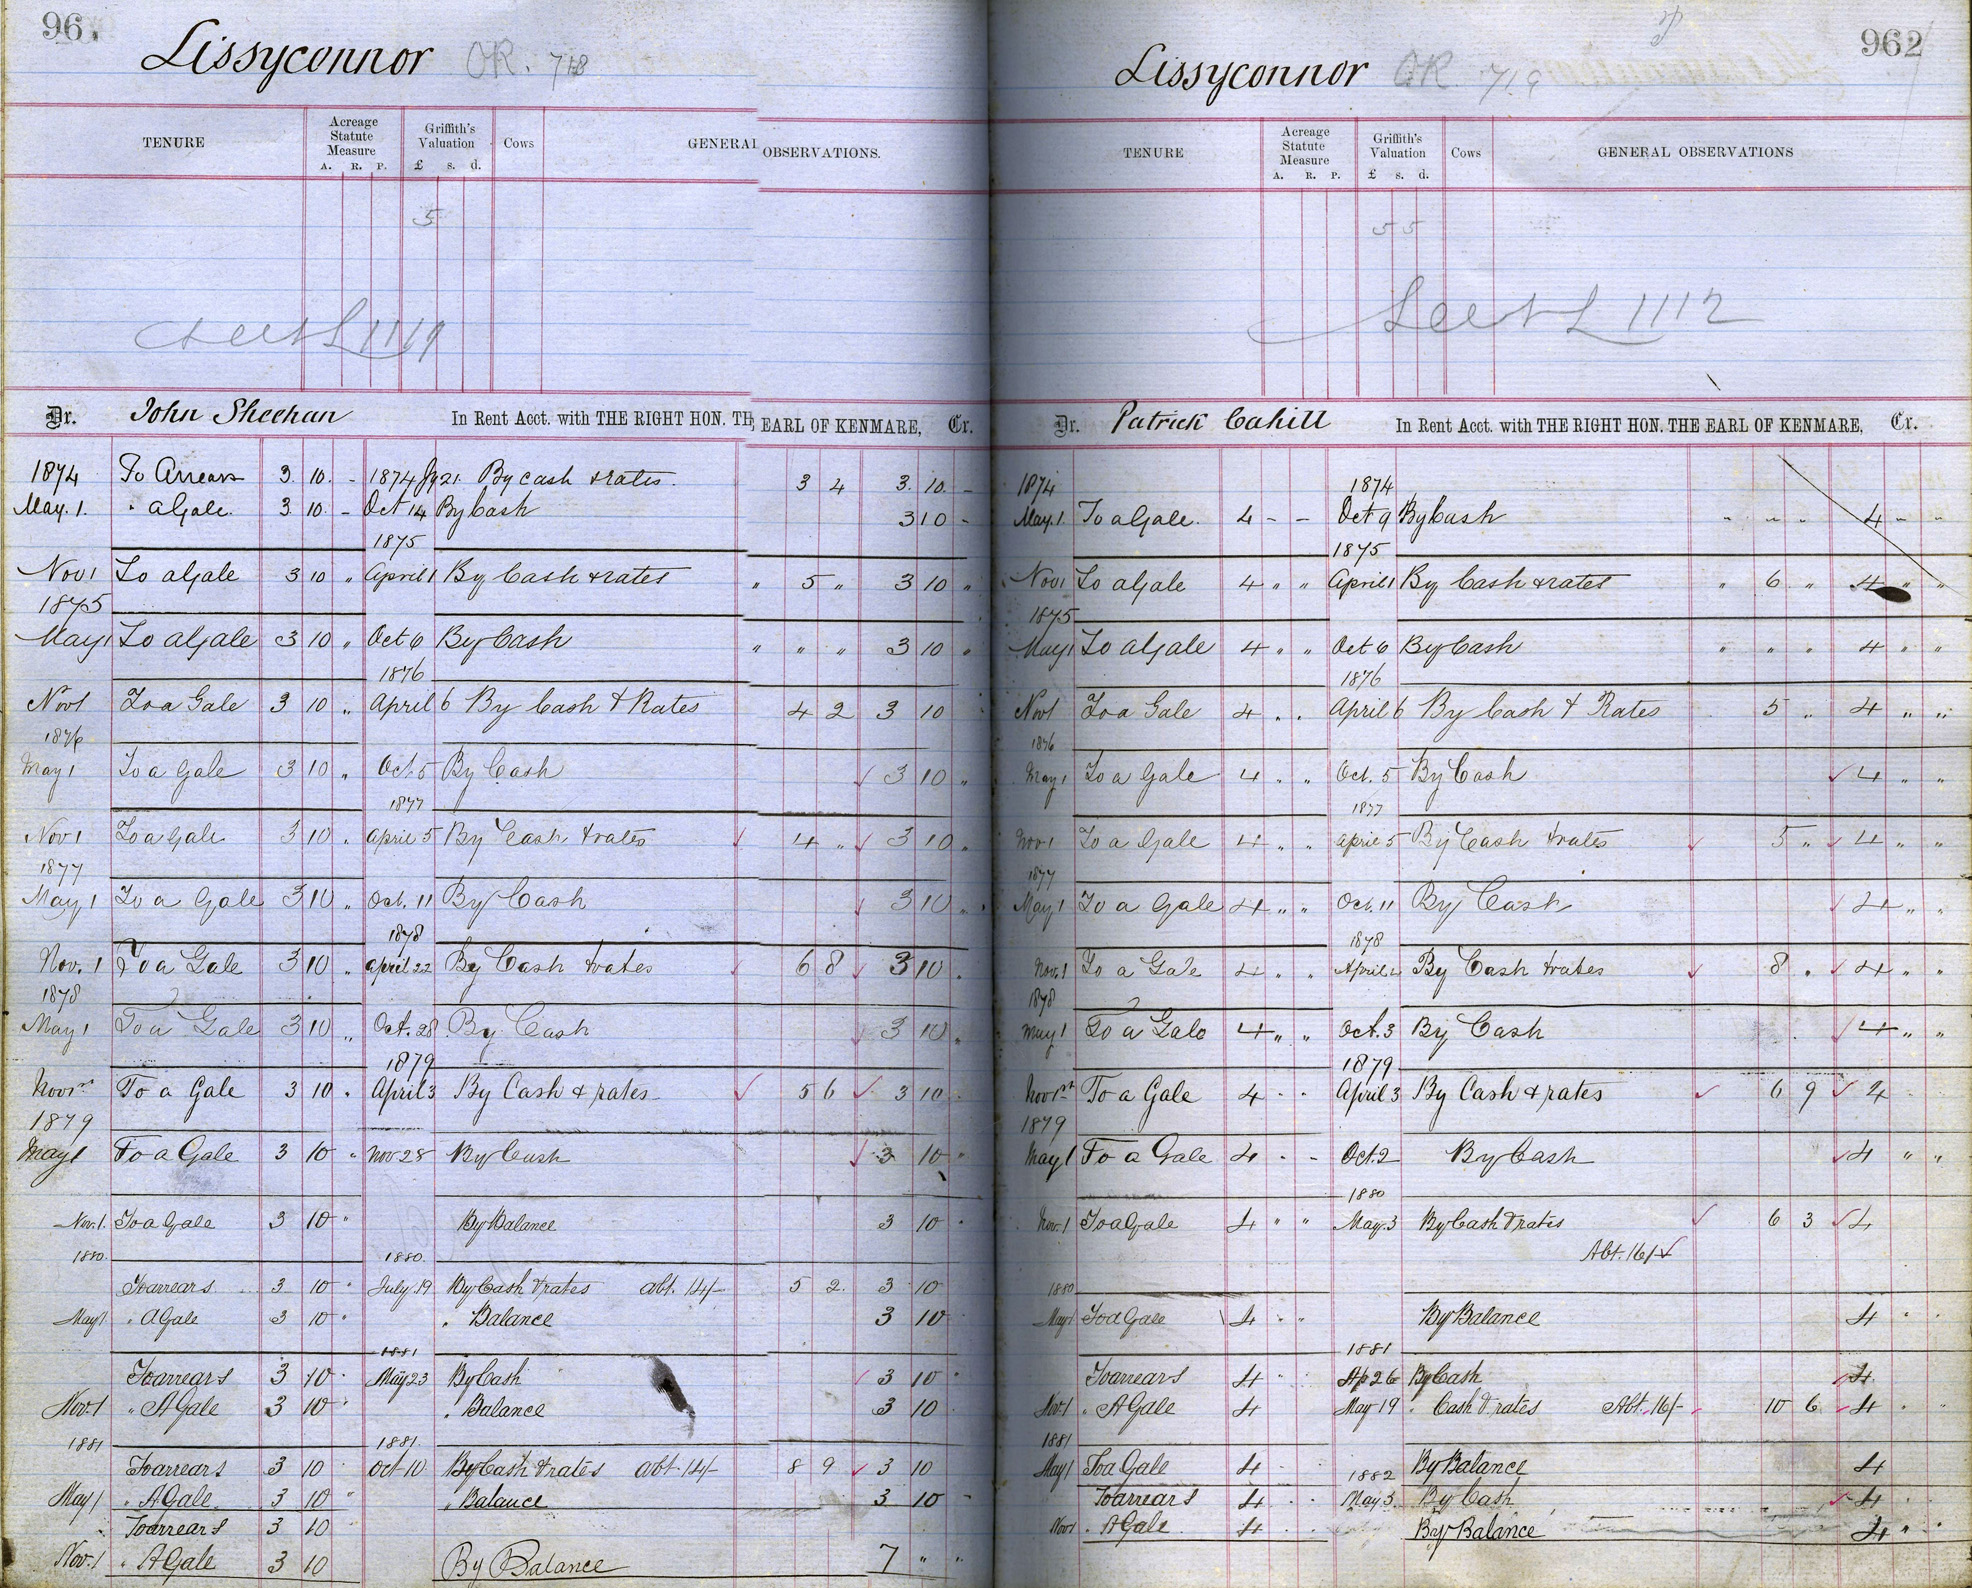 96
Lissyconnor OR. 718
TENURE
Acreage Statute Measure
A. R. P.
Griffith's Valuation
£ s. d.
Cows
GENERAL OBSERVATIONS.
5
Dr. John Sheehan In Rent Acct. with THE RIGHT HON. TH EARL OF KENMARE, Cr.
1874 To Arrears 3. 10. - 1874 Jy 21. By cash & rates. 3 4 3. 10. -
May. 1. " a Gale. 3. 10. - Oct 14 By Cash 3 10 -
1875
Nov 1 To a Gale 3 10 " April 1 By Cash & rates " 5 " 3 10 "
1875
May 1 To a Gale 3 10 " Oct 6 By Cash " " " 3 10 "
1876
Nov 1 To a Gale 3 10 " April 6 By Cash & Rates 4 2 3 10
1876
May 1 To a Gale 3 10 " Oct. 5 By Cash 3 10 "
1877
Nov 1 To a Gale 3 10 " April 5 By Cash & rates 4 " 3 10 "
1877
May 1 To a Gale 3 10 " Oct. 11 By Cash 3 10 "
1878
Nov. 1 To a Gale 3 10 " April 22 By Cash & rates 6 8 3 10 "
1878
May 1 To a Gale 3 10 " Oct. 28 By Cash 3 10 "
1879
Nov 1st To a Gale 3 10 " April 3 By Cash & rates 5 6 3 10
1879
May 1 To a Gale 3 10 " Nov 28 By Cash 3 10 "
Nov. 1. To a Gale 3 10 " By Balance 3 10 "
1880. 1880.
To arrears 3 10 " July 19 By Cash & rates abt. 14/- 5 2. 3 10
May 1 " A Gale 3 10 " " Balance 3 10
1881
To arrears 3 10 " May 23 By Cash 3 10
Nov. 1 " A Gale 3 10 " " Balance 3 10
1881 1881.
To arrears 3 10 Oct 10 By Cash & rates abt 14/- 8 9 3 10
May 1 " A Gale 3 10 " " Balance 3 10 -
To arrears 3 10
Nov. 1 " A Gale 3 10 By Balance 7 " "
962
Lissyconnor OR 719
TENURE
Acreage Statute Measure
A. R. P.
Griffith's Valuation
£ s. d.
Cows
GENERAL OBSERVATIONS
5 5
Dr. Patrick Cahill In Rent Acct. with THE RIGHT HON. THE EARL OF KENMARE, Cr.
1874 1874
May. 1 To a Gale. 4 - - Oct 9 By Cash " " " 4 " "
1875
Nov 1 To a Gale 4 " " April 1 By Cash & rates " 6 " 4 " "
1875
May 1 To a Gale 4 " " Oct 6 By Cash " " " 4 " "
1876
Nov 1 To a Gale 4 " " April 6 By Cash & Rates 5 " 4 " "
1876
May 1 To a Gale 4 " " Oct. 5 By Cash 4 " "
1877
Nov 1 To a Gale 4 " " April 5 By Cash & rates 5 " 4 " "
1877
May 1 To a Gale 4 " " Oct. 11 By Cash 4 " "
1878
Nov. 1 To a Gale 4 " " April By Cash & rates 8 " 4 " "
1878
May 1 To a Gale 4 " " Oct. 3 By Cash 4 " "
1879
Nov 1st To a Gale 4 " " April 3 By Cash & rates 6 9 4
1879
May 1 To a Gale 4 " " Oct. 2 By Cash 4 " "
1880
Nov. 1 To a Gale 4 " " May 3 By Cash & rates 6 3 4
Abt. 16/-
1880
May 1 To a Gale 4 " " By Balance 4 "
1881
To arrears 4 " Ap 26 By Cash 4
Nov. 1 " A Gale 4 May 19 " Cash & rates Abt. 16/- 10 6 4
1881
May 1 To a Gale 4 By Balance 4
1882
To arrears 4 May 3 By Cash 4
Nov 1 " A Gale 4 By Balance 4 "